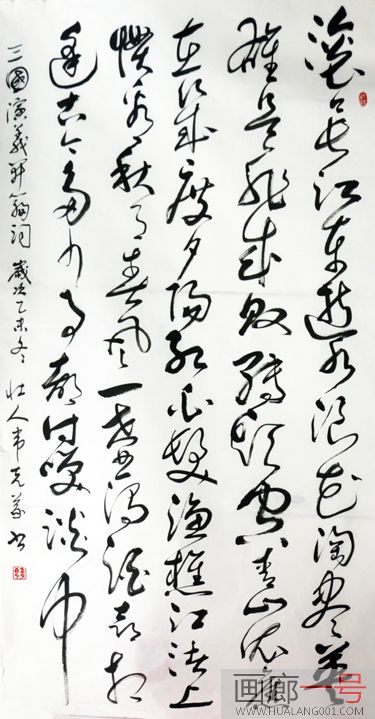 滚滚长江东逝水浪花淘尽英
雄是非成败转头空青山依旧
在几度夕阳红白发渔樵江渚上
惯看秋月春风一壶浊酒喜相
逢古今多少事都付笑谈中
三國演義開篇词 歲次乙未冬 壮人韦克义书
画廊一号
WWW.HUALANG001.COM